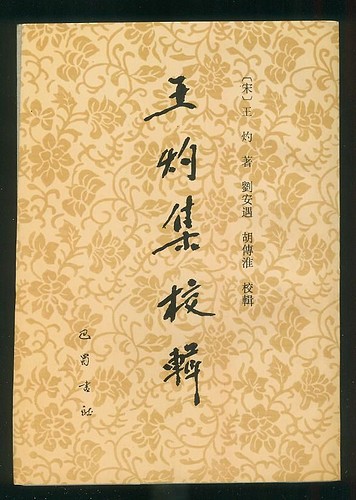 〔宋〕王 灼 著 劉安遇 胡傳淮 校輯
王灼集校輯
巴蜀书社